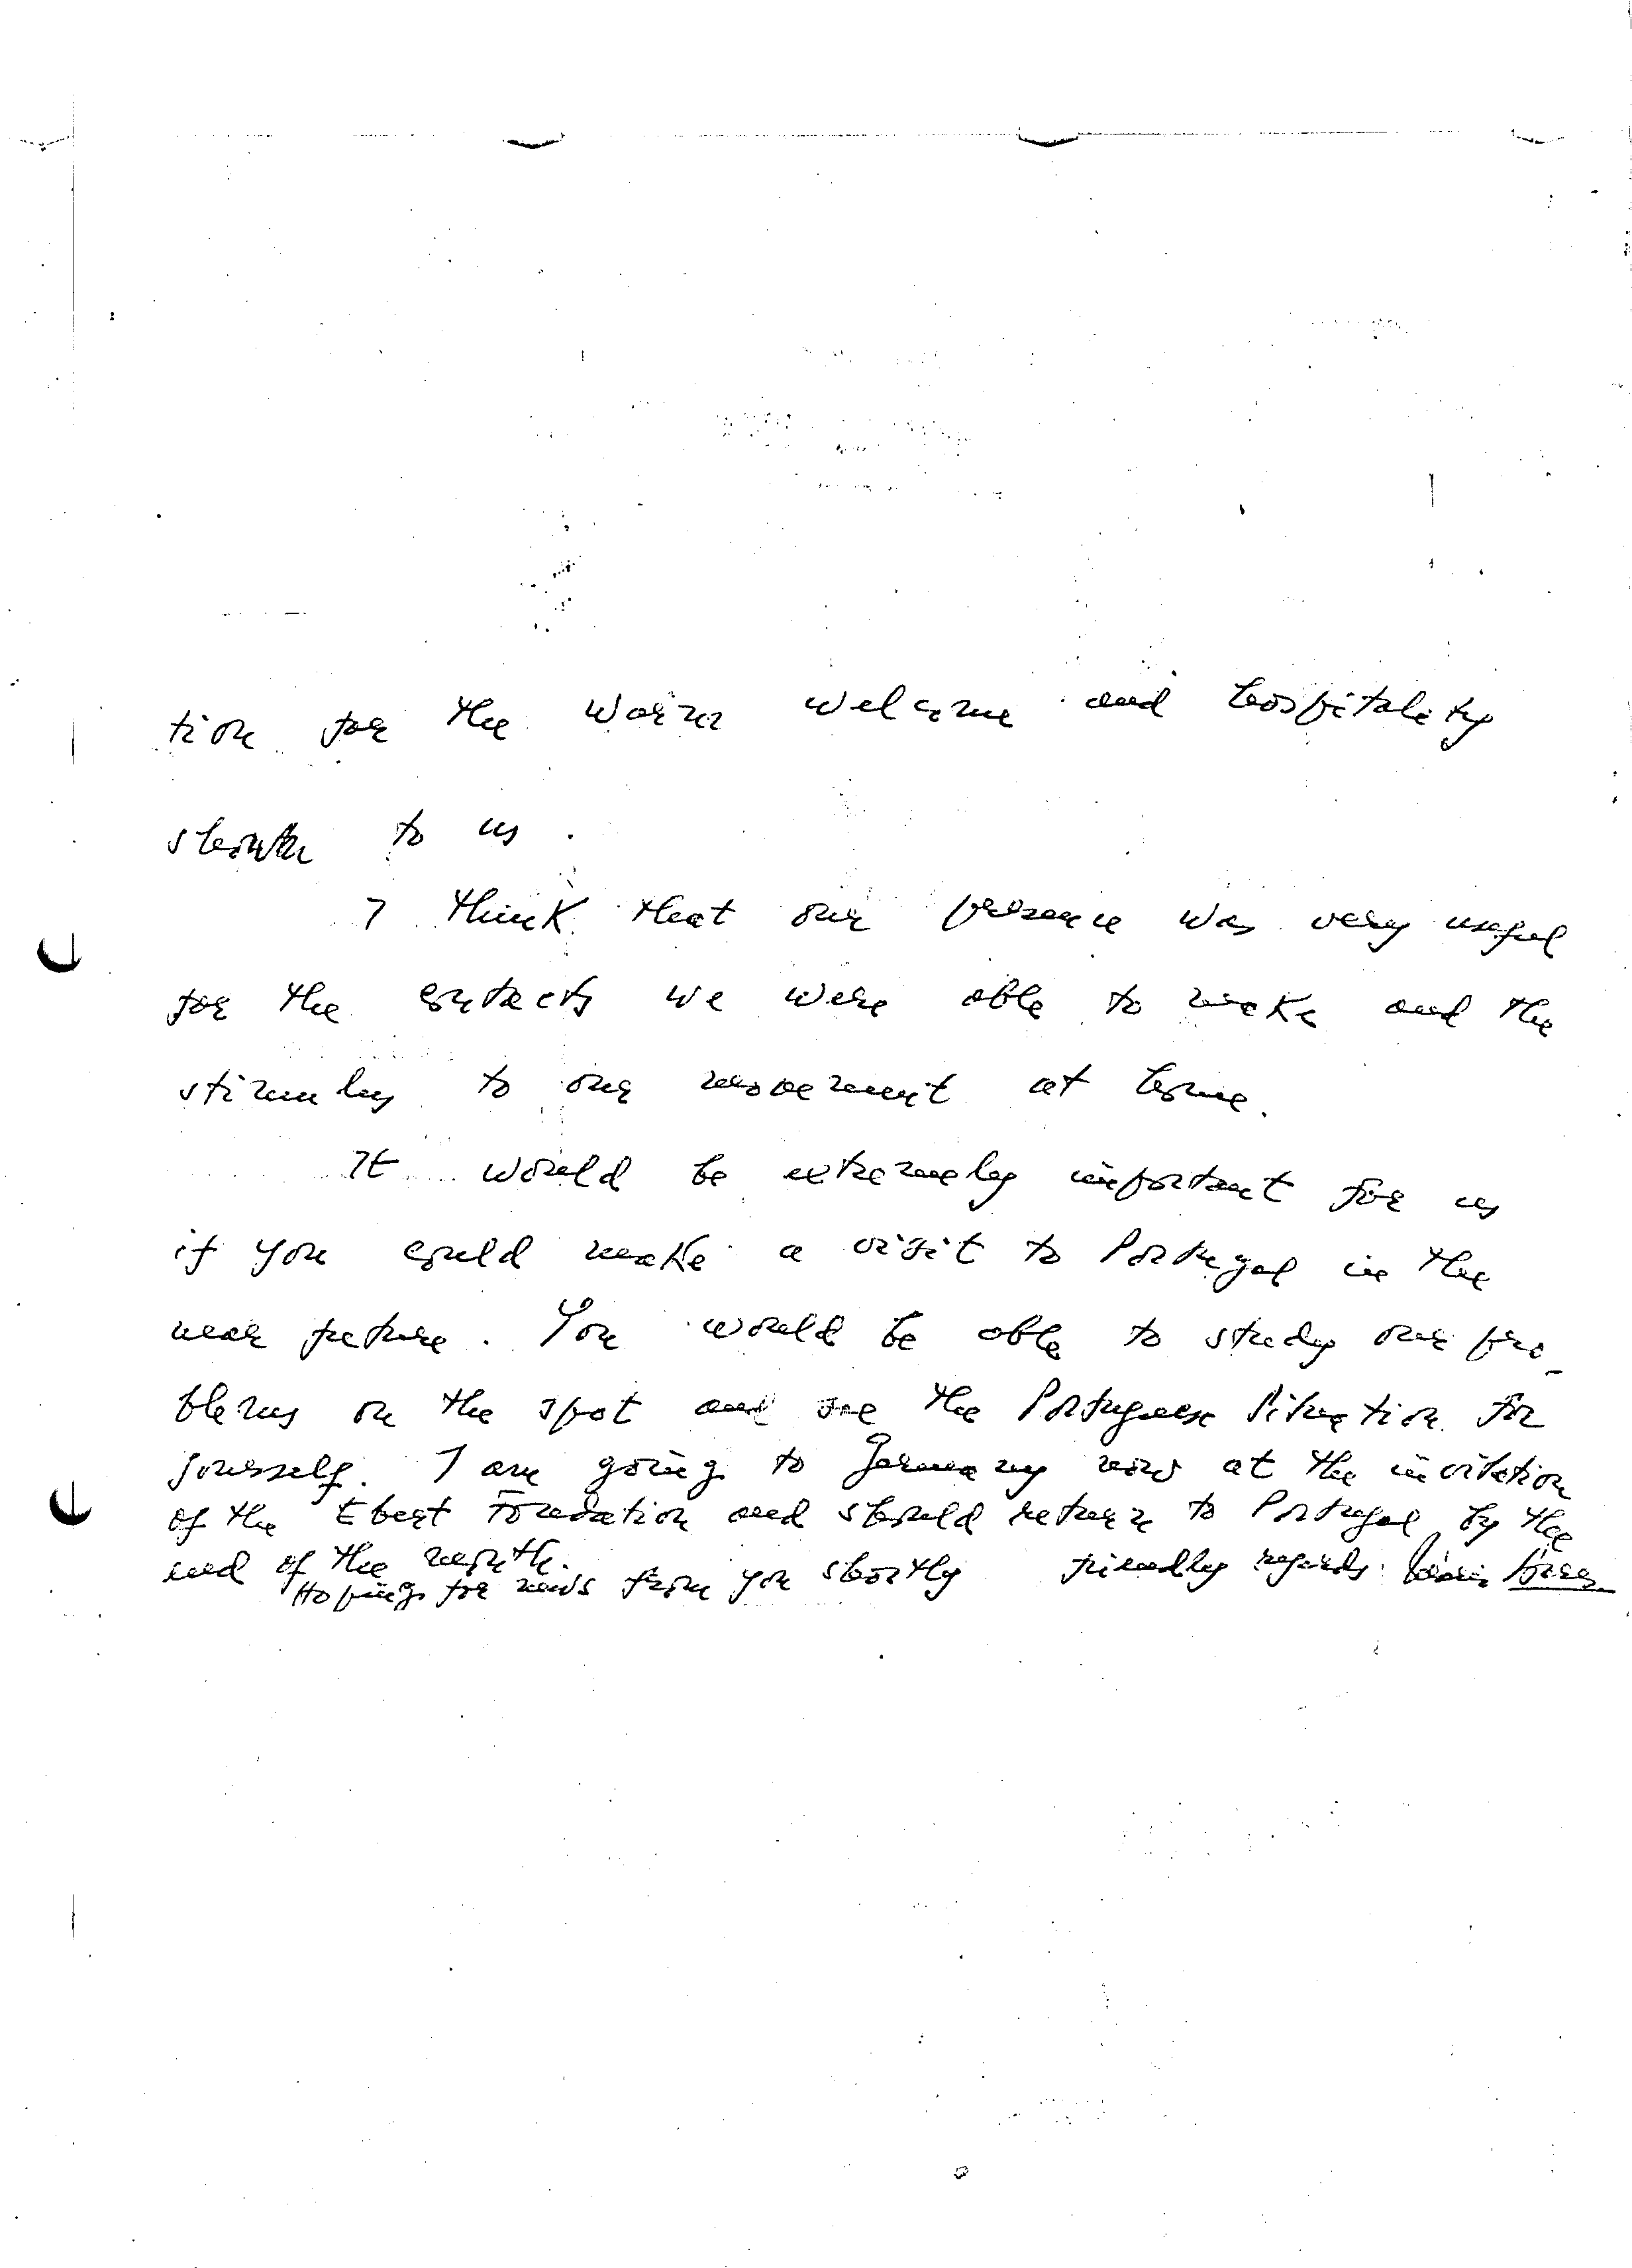 tion for the warm welcome and hospitality
shown to us.
I think that our presence was very useful
for the contacts we were able to make and the
stimulus to our movement at home.
It would be extremely important for us
if you could make a visit to Portugal in the
near future. You would be able to study our pro_
blems on the spot and see the Portuguese situation for
yourself. I am going to Germany now at the invitation
of the Ebert Foundation and should return to Portugal by the
end of the month.
Hoping for news from you shortly friendly regards Soares